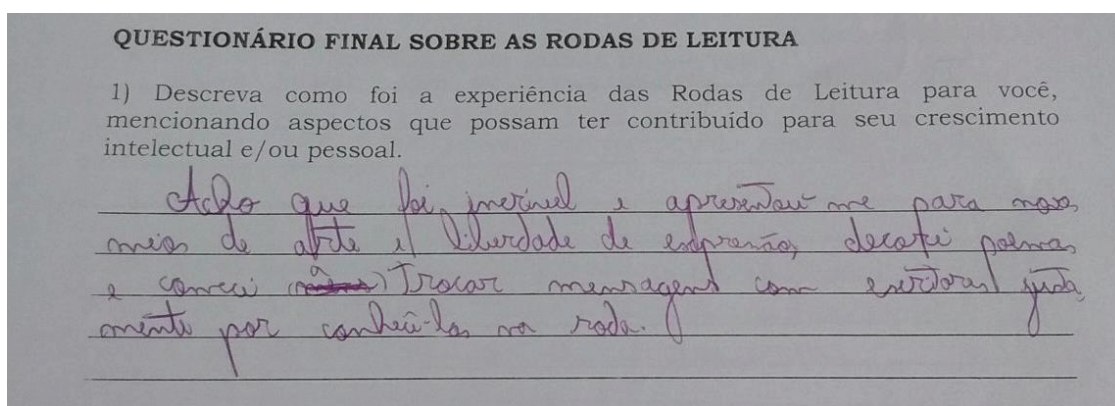 QUESTIONÁRIO FINAL SOBRE AS RODAS DE LEITURA
1) Descreva como foi a experiência das Rodas de Leitura para você,
mencionando aspectos que possam ter contribuído para seu crescimento
intelectual e/ou pessoal.
Acho que foi incrível e apresentou me para novos
meios de arte e liberdade de expressão, poemas
e comecei a Trocar mensagens com escritores justa
mente por conhecê-los na roda.